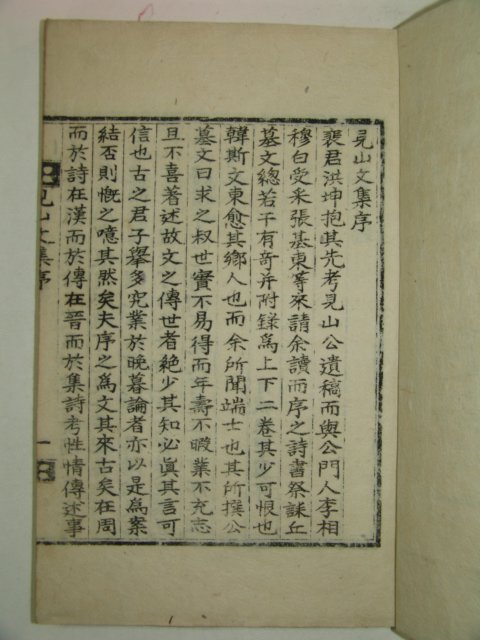 見山文集序
裵君洪坤抱其先考見山公遺稿而與公門人李相
穆白受采張基東等來請余讀而序之詩書祭誄丘
墓文總若干有奇并附錄爲上下二卷其少可恨也
韓斯文東愈其鄉人也而余所聞端士也其所撰公
墓文曰求之叔世實不易得而年壽不暇業不充志
且不喜著述故文之傳世者絶少其知必眞其言可
信也古之君子舉多究業於晚暮論者亦以是爲案
結否則慨之噫其然矣夫序之爲文其來古矣在周
而於詩在漢而於傳在晉而於集詩考性情傳述事
見山文集序
一